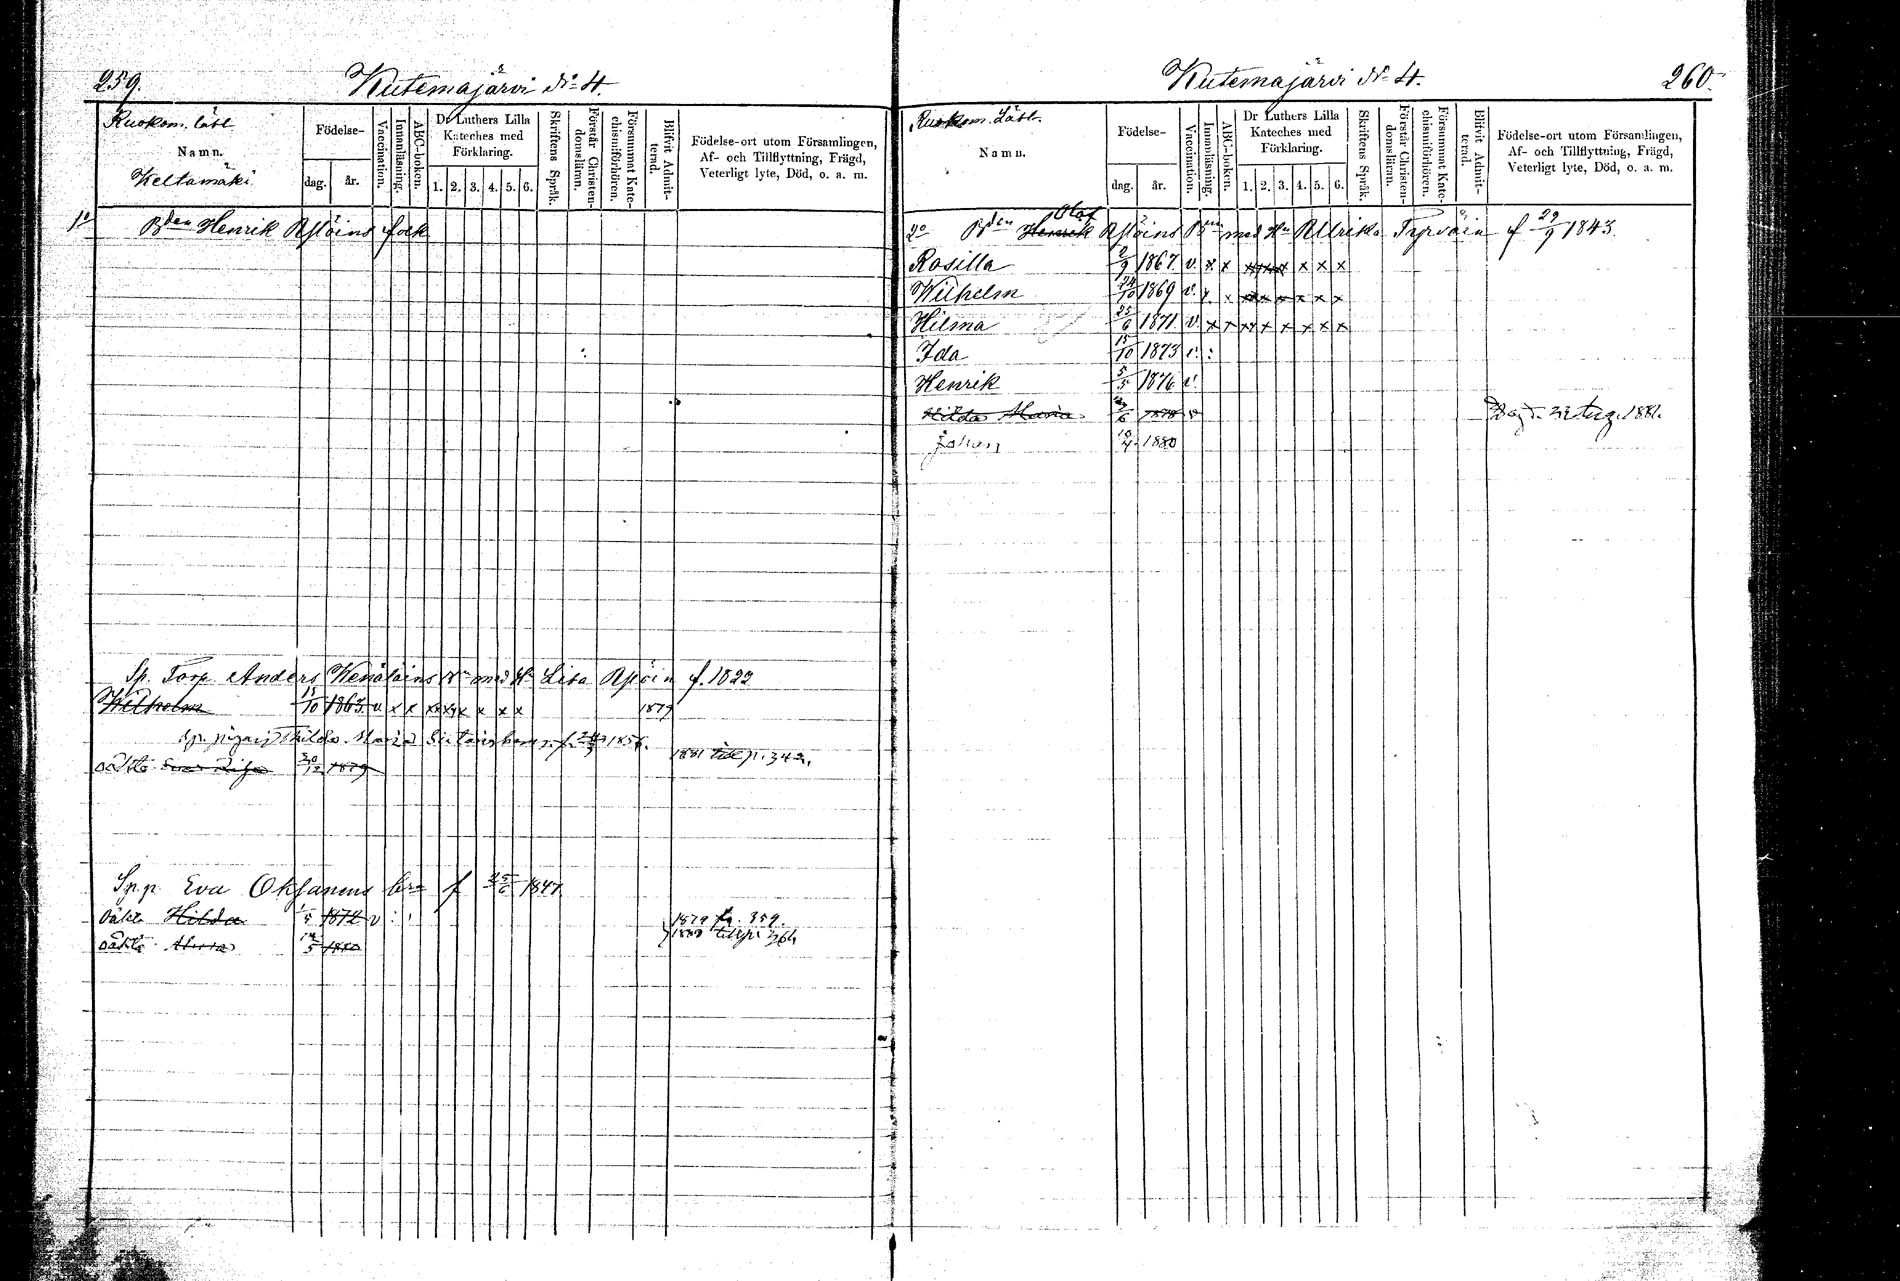 259.
Kutemajärvi No 4.
Ruokom. läsl.
Namn.
Keltamäki
Födelse-
dag. år.
Vaccination.
Innanläsning.
ABC-boken.
Dr Luthers Lilla
Kateches med
Förklaring.
1. 2. 3. 4. 5. 6.
Skriftens Språk.
Förstår Christen-
domsläran.
Försummat Kate-
chismiförhören.
Blifvit Admit-
terad.
Födelse-ort utom Församlingen,
Af- och Tillflyttning, Frägd,
Veterligt lyte, Död, o. a. m.
1o Bden Henrik folk
Sp. Torp. Anders med H. Lisa f. 1822
Wilhelm 15/10 1863 v x x x x x x 1879
Maria 1856.
1881 till p. 342.
oäkta 20/12 1879
Sp.p. Eva f 25/6 1847.
oäkta Hilda 1/5 1872 v
1879 fr. 359.
oäkta 14/5 1880
Kutemajärvi No 4.
260.
Ruokom. Läsl.
Namn.
Födelse-
dag. år.
Vaccination.
Innanläsning.
ABC-boken.
Dr Luthers Lilla
Kateches med
Förklaring.
1. 2. 3. 4. 5. 6.
Skriftens Språk.
Förstår Christen-
domsläran.
Försummat Kate-
chismiförhören.
Blifvit Admit-
terad.
Födelse-ort utom Församlingen,
Af- och Tillflyttning, Frägd,
Veterligt lyte, Död, o. a. m.
Olof
2o Bden Henrik med Hu Ulrika Tyrväin f 29/9 1843.
Rosilla 2/9 1867 v. x x x x x
Wilhelm 24/10 1869 v. x x x x x x x
Hilma 25/6 1871 v. x x x x x x x x
Ida 15/10 1873 v.
Henrik 5/5 1876 v.
Hilda Maria 1878 v
Aug. 1881.
Johan 10/4 1880